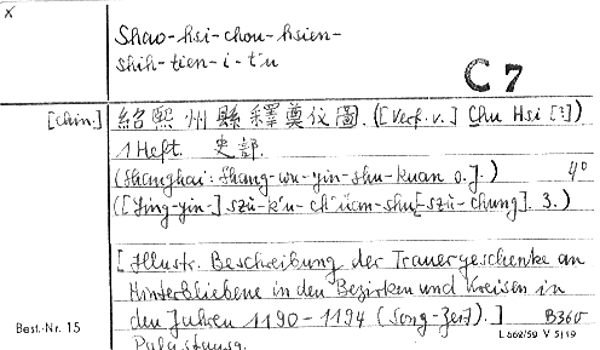 x
Shao-hsi-chou-hsien-
shih-tien-i-t'u
C 7
[chin.] 紹熙州縣釋奠仪圖. ([Verf. v.] Chu Hsi [?])
1 Heft. 史部.
(Shanghai: Shang-wu-yin-shu-kuan o.J.) 4°
([Ying-yin-] szù-k'u-ch'üan-shu[-szù-chung]. 3.)
[Illustr. Beschreibung der Trauergeschenke an
Hinterbliebene in den Bezirken und Kreisen in
den Jahren 1190-1194 (Song-Zeit).] B360
Best.-Nr. 15 L 662/59 V 5119